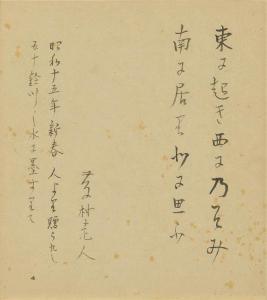 東に起き西にのぞみ
南に居り北に思ふ
黄村老人
昭和十五年新春 人より贈られし
五十鈴川の水に墨すりて